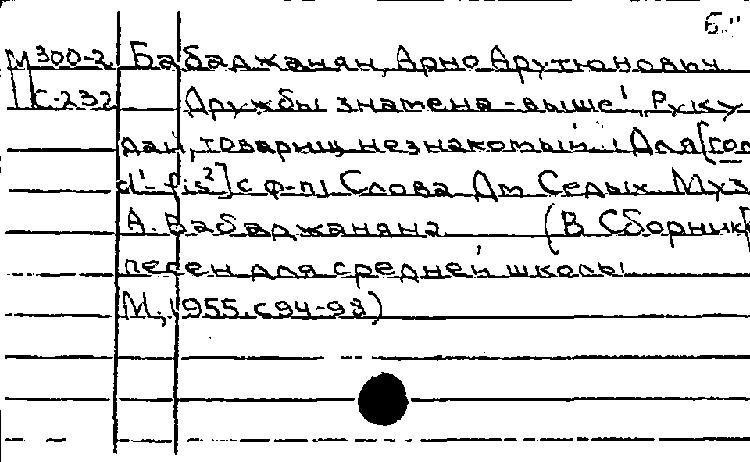 б."
М 300-2 Бабаджанян, Арно Арутюнович
С-232 Дружбы знамена - выше! "Руку
дай, товарищ незнакомый"! Для [гол
d'-fis²] с ф-п] Слова Дм Седых Муз
А. Бабаджаняна (В Сборник[
песен для средней школы
М, 1955. с 94-98)